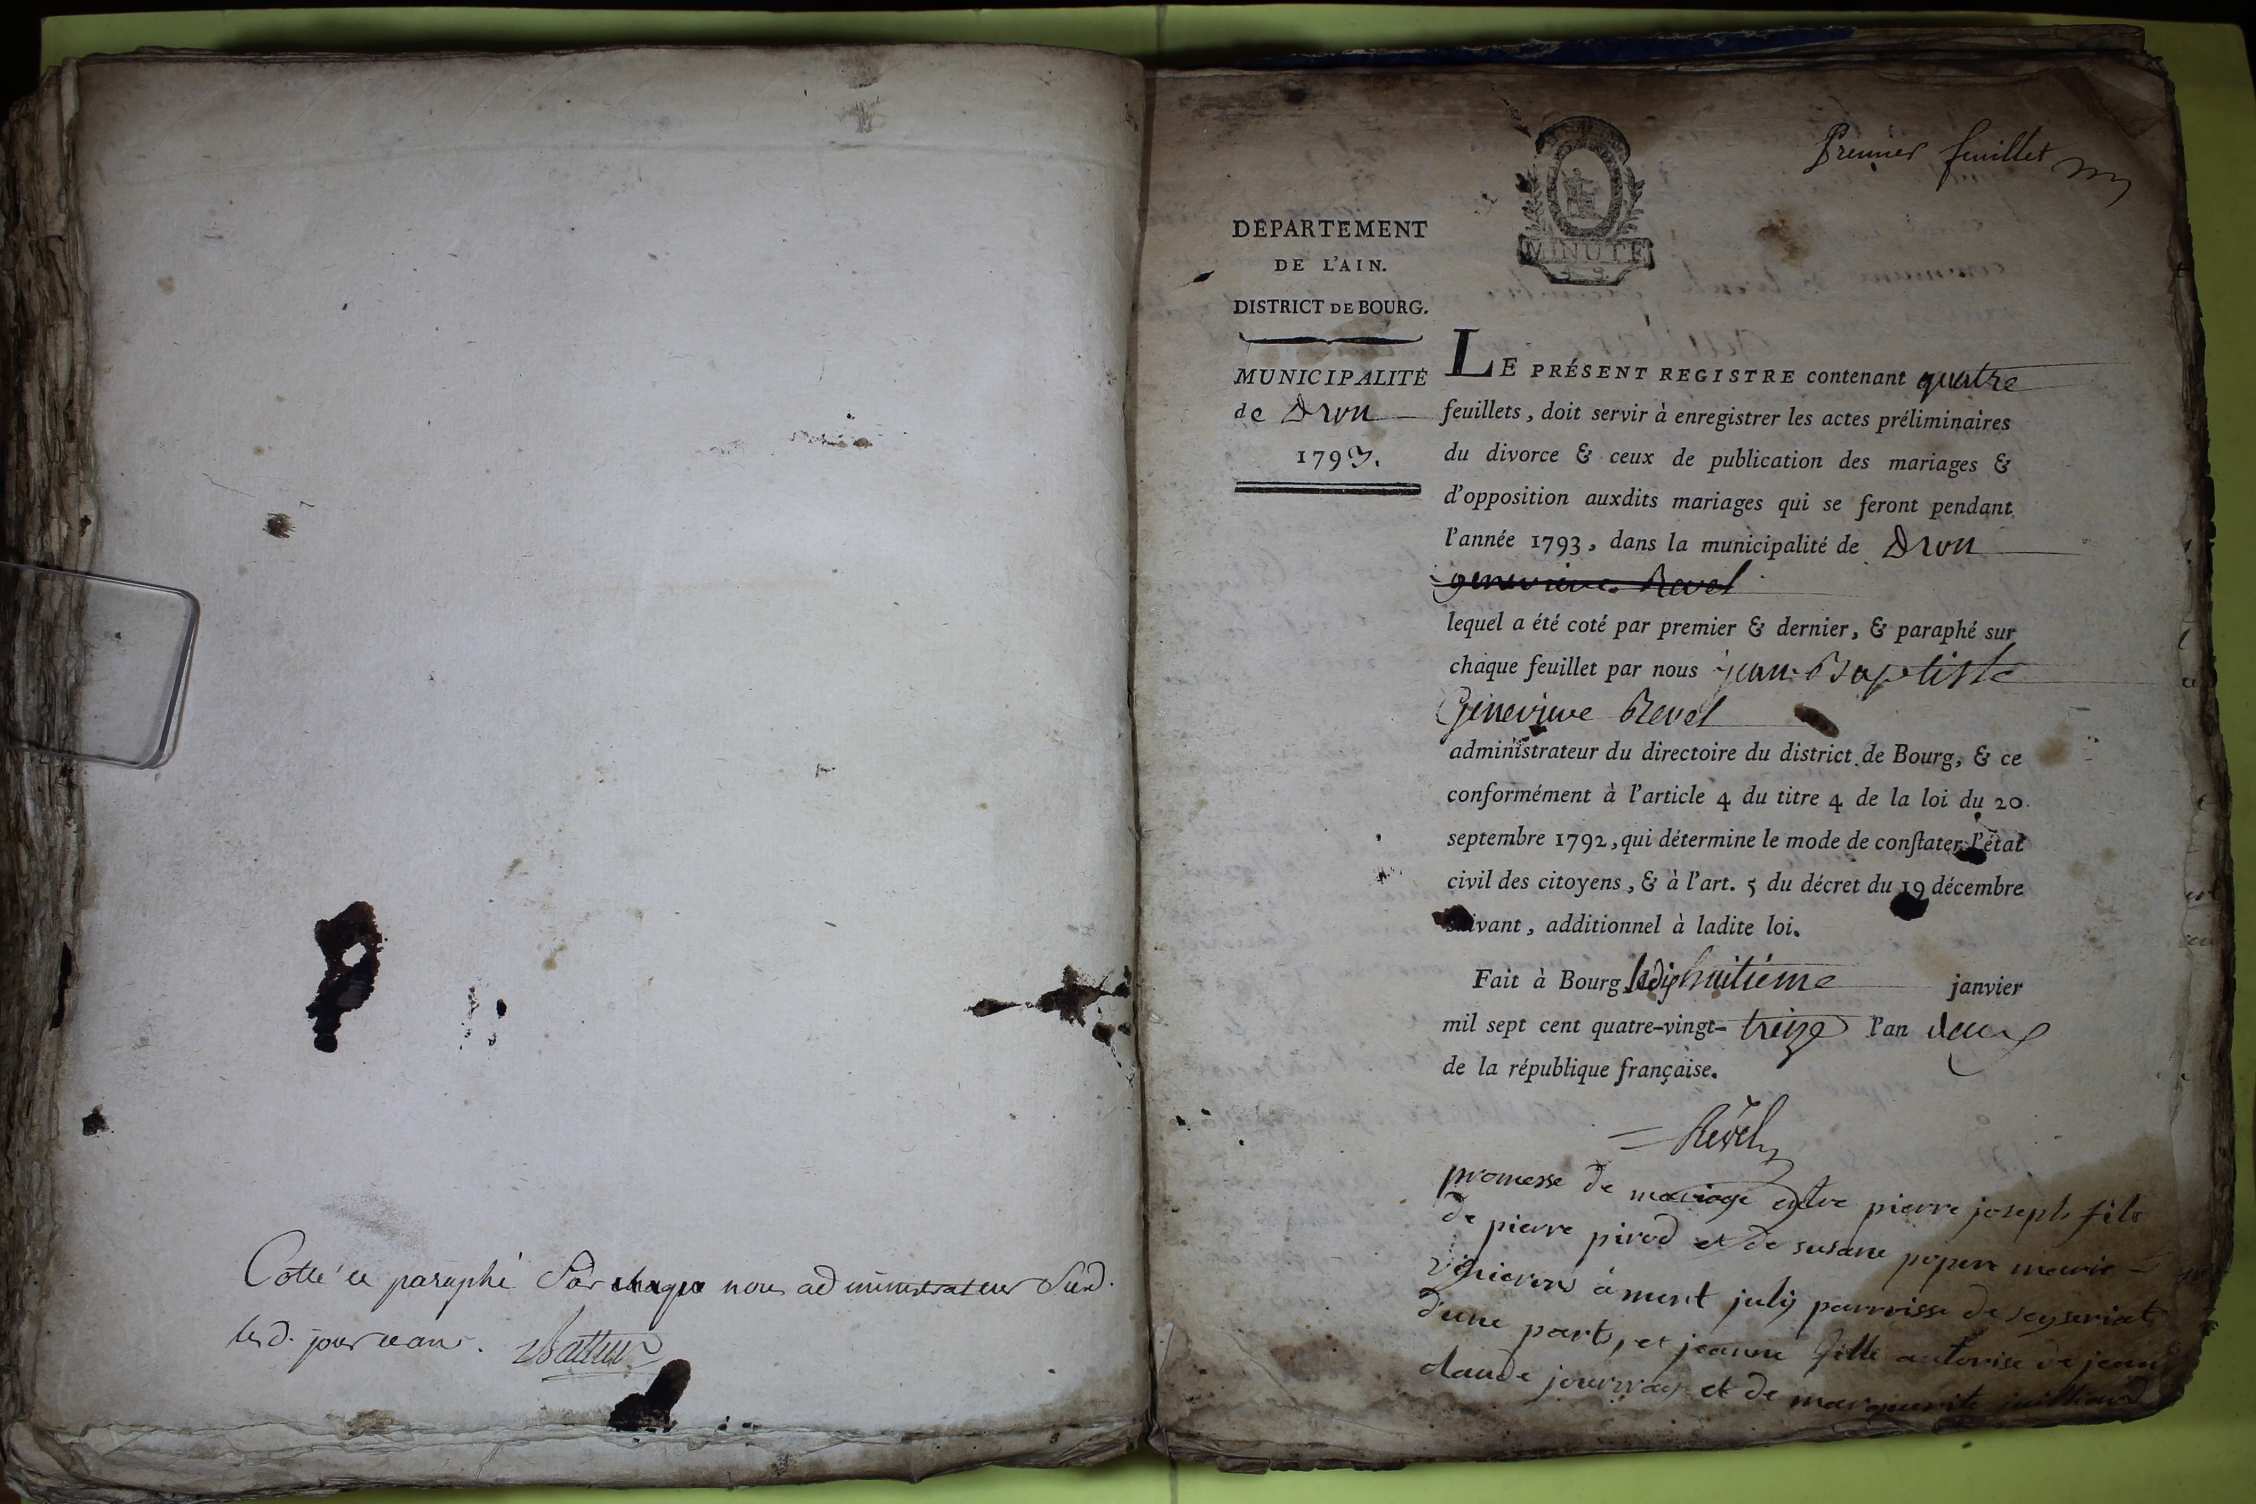 Cotte et paraphé Par chaque nous administrateur Susd.
lesd. jour et an.
Premier feuillet
MINUTE
DÉPARTEMENT
DE L'AIN.
DISTRICT DE BOURG.
MUNICIPALITÉ
de Drom
1793.
LE PRÉSENT REGISTRE contenant quatre
feuillets, doit servir à enregistrer les actes préliminaires
du divorce & ceux de publication des mariages &
d'opposition auxdits mariages qui se feront pendant
l'année 1793, dans la municipalité de Drom
genevieve Revel
lequel a été coté par premier & dernier, & paraphé sur
chaque feuillet par nous jean Baptiste
Genevieve Revel
administrateur du directoire du district de Bourg, & ce
conformément à l'article 4 du titre 4 de la loi du 20
septembre 1792, qui détermine le mode de conſtater l'état
civil des citoyens, & à l'art. 5 du décret du 19 décembre
suivant, additionnel à ladite loi.
Fait à Bourg, le dix huitième janvier
mil sept cent quatre-vingt-treize l'an deux
de la république française.
Revel
promesse de mariage entre pierre joseph fils
de pierre pirod et de susane popon marie
vignerons a mont july parroisse de seyseriat
d'une part, et jeanne fille autorise de jean
claude jourvray et de marguerite juilliard